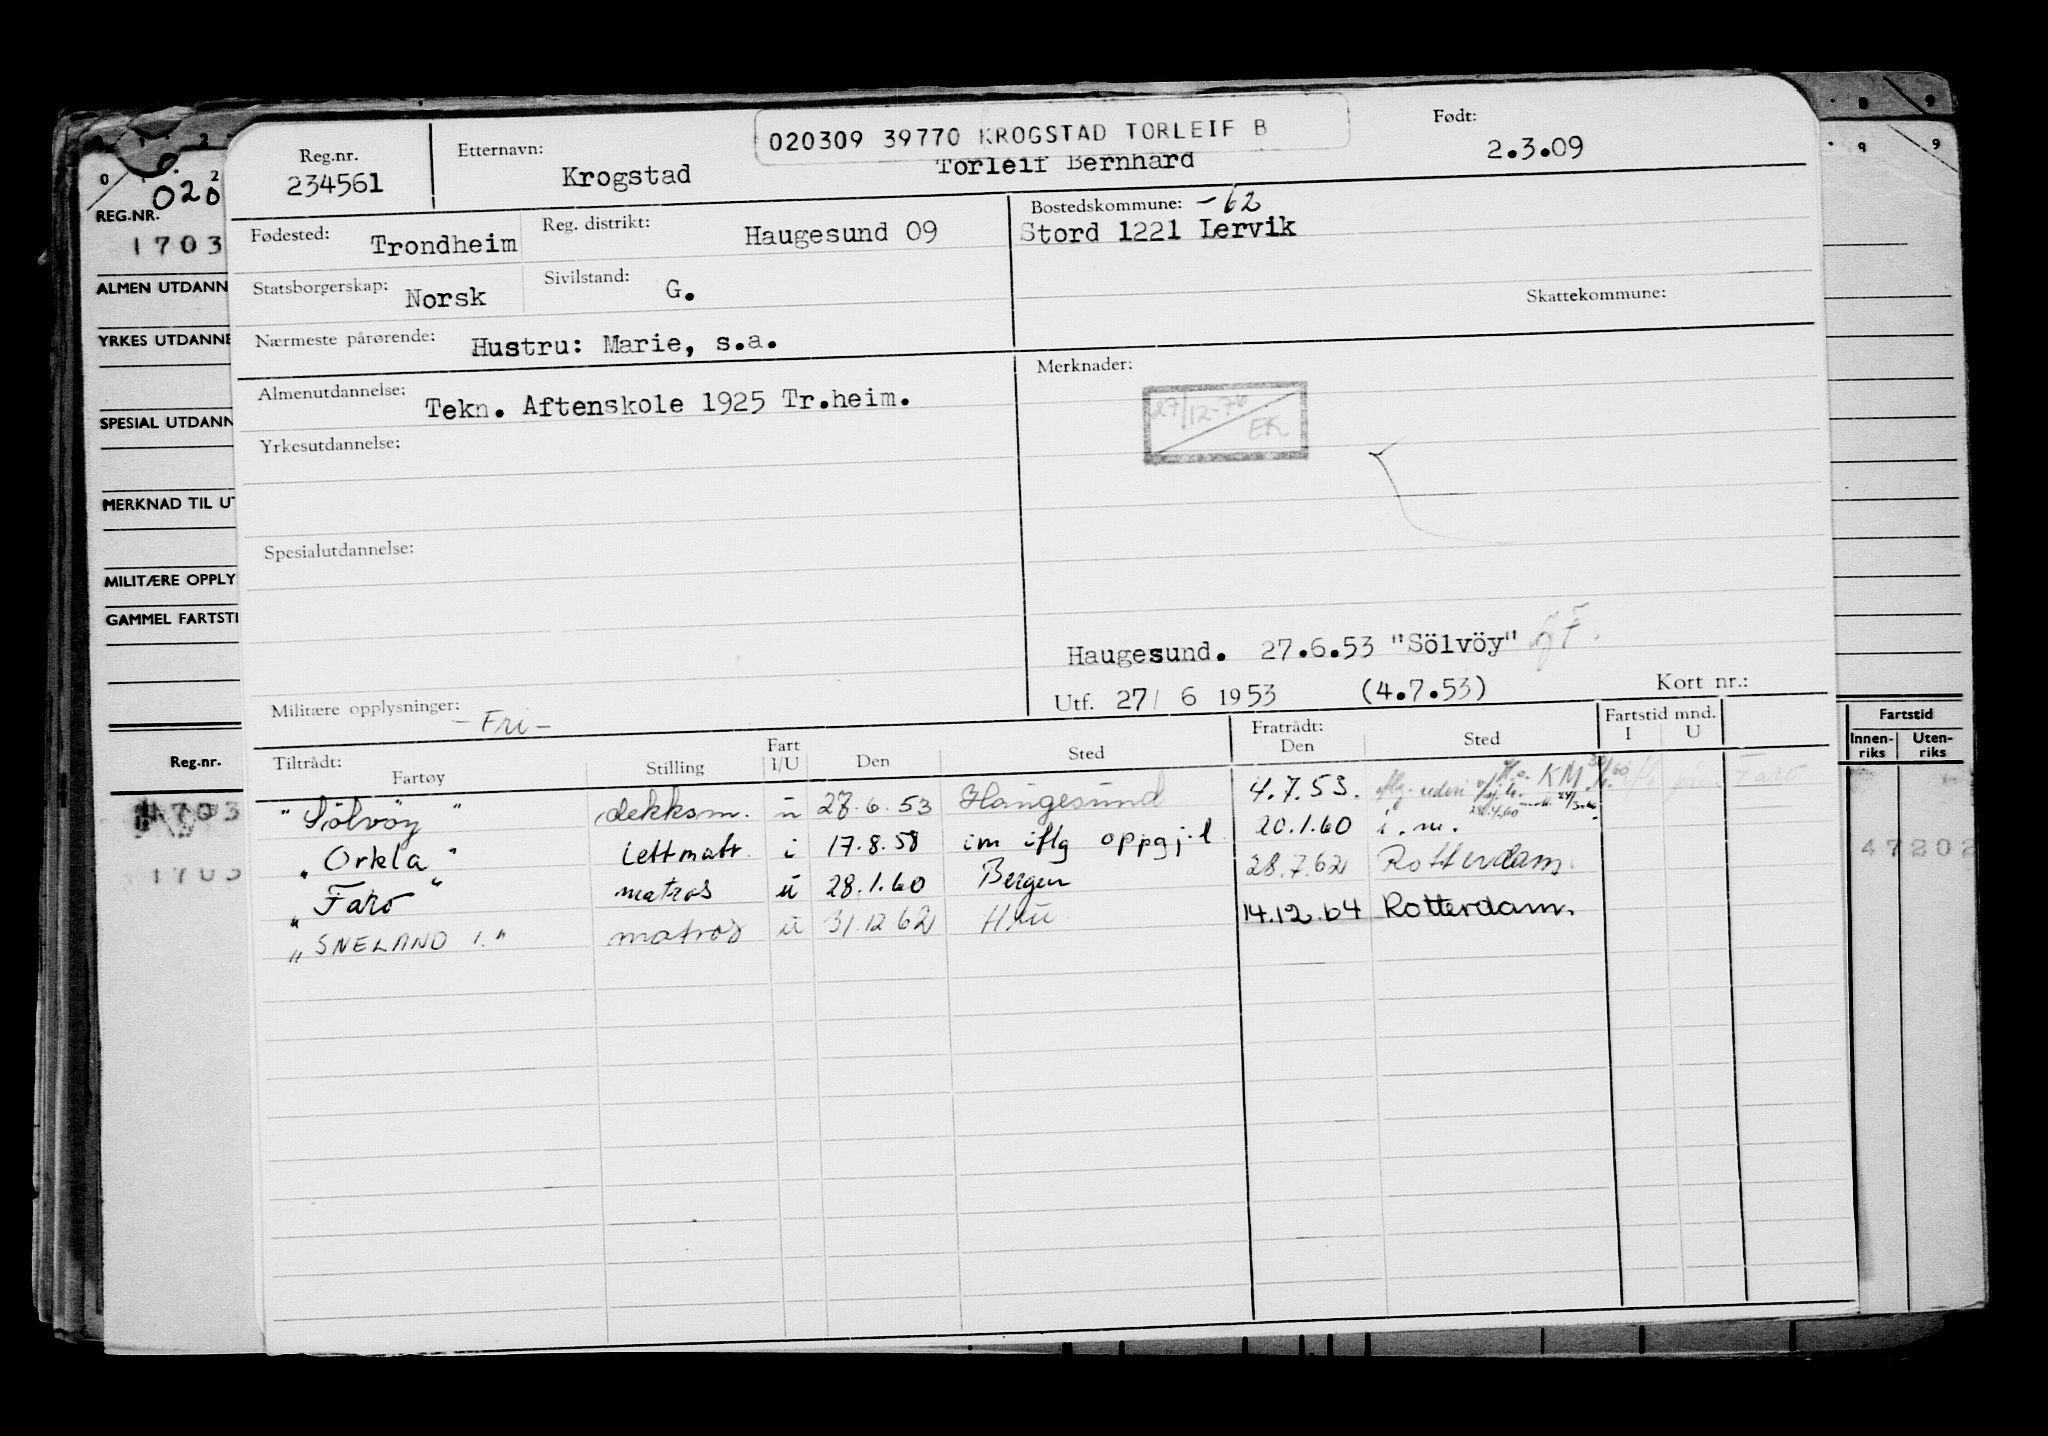 020309 39770 KROGSTAD TORLEIF B
Reg.nr. 234561
Etternavn: Krogstad Torleif Bernhard
Født: 2.3.09
Fødested: Trondheim
Reg. distrikt: Haugesund 09
Bostedskommune: -62
Stord 1221 Lervik
Statsborgerskap: Norsk
Sivilstand: G.
Skattekommune:
Nærmeste pårørende: Hustru: Marie, s.a.
Almenutdannelse: Tekn. Aftenskole 1925 Tr.heim.
Merknader:
27/12-70
EK
Yrkesutdannelse:
Spesialutdannelse:
Haugesund. 27.6.53 "Sölvöy"
Utf. 27/ 6 1953 (4.7.53)
Kort nr.:
Militære opplysninger: - Fri -
Tiltrådt: Fartøy Stilling Fart I/U Den Sted Fratrådt: Den Sted Fartstid mnd. I U
"Sölvöy" dekksm. u 28.6.53 Haugesund 4.7.53.
"Orkla" Lettmatr. i 17.8.58 im iflg oppgj.l 20.1.60 i.m.
"Faro" matros u 28.1.60 Bergen 28.7.62 Rotterdam.
"SNELAND I." matros u 31.12.62 14.12.64 Rotterdam.
020
REG.NR.
1703
ALMEN UTDANN
YRKES UTDANNE
SPESIAL UTDANN
MERKNAD TIL UT
MILITÆRE OPPLY
GAMMEL FARTSTI
Reg.nr.
1703
1703
Fartstid
Innen-riks Uten-riks
47202